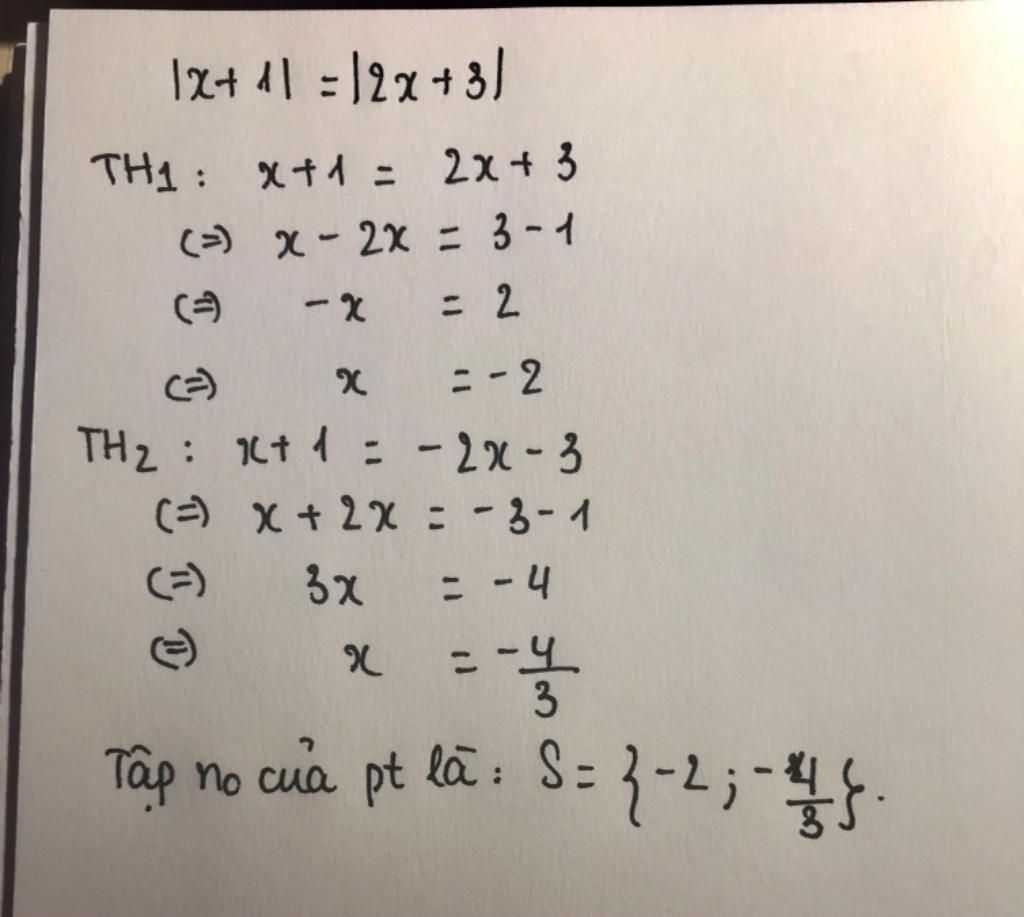 |x+1| = |2x+3|
TH1: x+1 = 2x+3
(=) x - 2x = 3 - 1
(=) -x = 2
(=) x = -2
TH2: x+1 = -2x-3
(=) x + 2x = -3-1
(=) 3x = -4
(=) x = -4/3
Tập no của pt là: S = {-2; -4/3}.